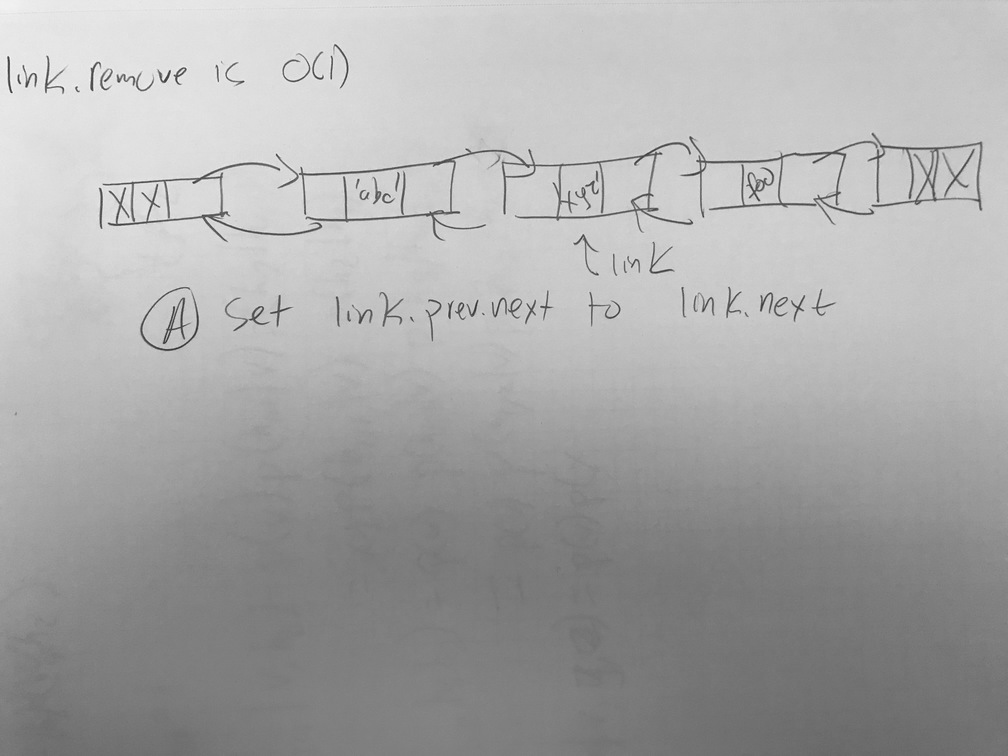 link.remove is O(1)
X X 'abc' 'xyz' foo X X
↑ link
A set link.prev.next to link.next